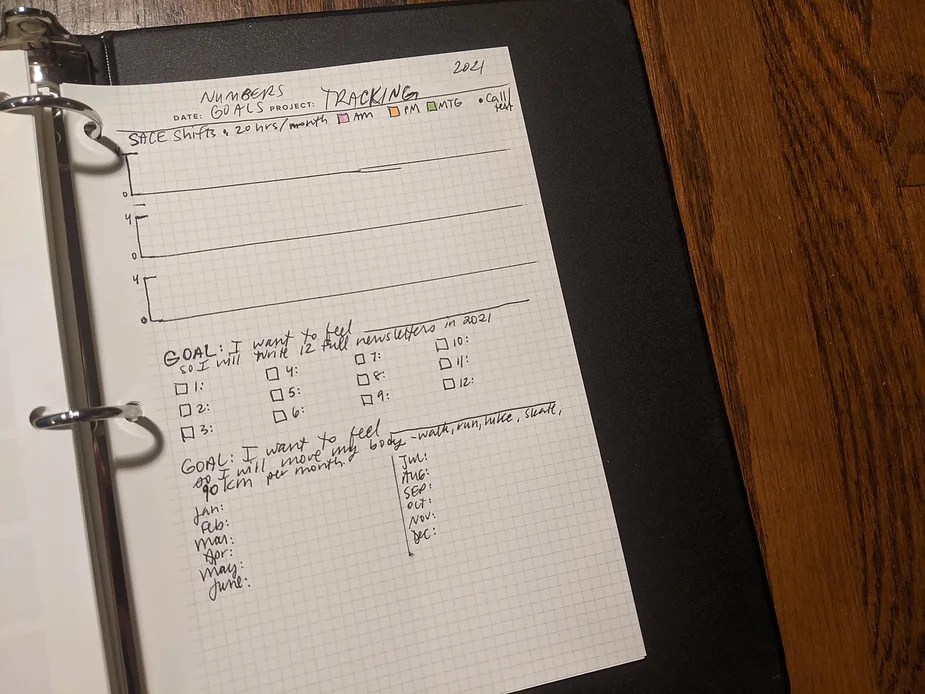 2021
NUMBERS
DATE: GOALS PROJECT: TRACKING
SACE Shifts • 20 hrs/month AM PM MTG • Call/text
4
0
4
0
4
0
GOAL: I want to feel
so I will write 12 full newsletters in 2021
1: 4: 7: 10:
2: 5: 8: 11:
3: 6: 9: 12:
GOAL: I want to feel
so I will move my body - walk, run, hike, skate,
90 km per month.
Jan:
Feb:
Mar:
Apr:
May:
June:
Jul:
AUG:
SEP:
OCT:
NOV:
DEC: